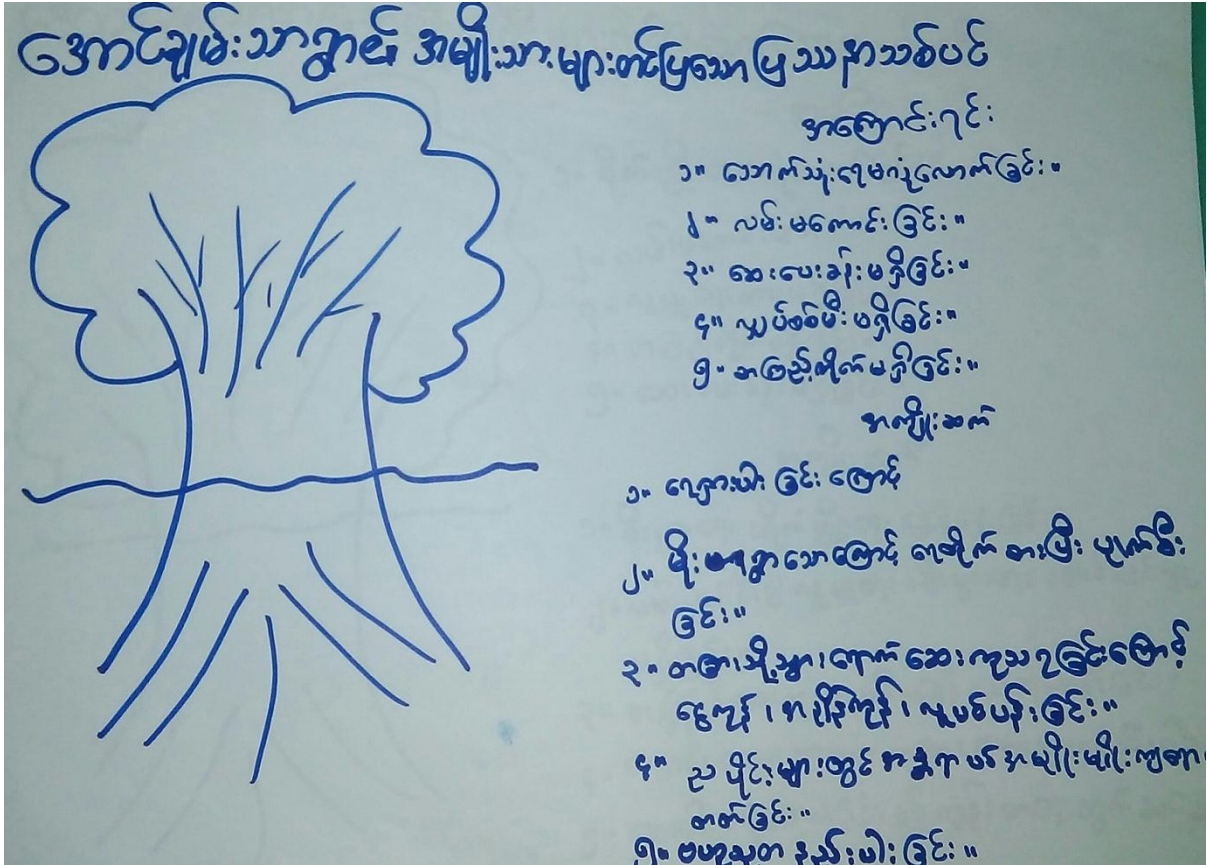 အောင်ချမ်းသာရွာ၏ အမျိုးသားများတင်ပြသော ပြဿနာသစ်ပင်
အကြောင်းရင်း
၁။ သောက်သုံးရေမလုံလောက်ခြင်း။
၂။ လမ်းမကောင်းခြင်း။
၃။ ဆေးပေးခန်းမရှိခြင်း။
၄။ လျှပ်စစ်မီးမရှိခြင်း။
၅။ စာကြည့်တိုက်မရှိခြင်း။
အကျိုးဆက်
၁။ ရေရှားပါးခြင်းကြောင့်
၂။ မိုးရွာသောကြောင့် ရေတိုက်စားပြီး ပျက်စီး
ခြင်း။
၃။ တခြားသို့သွားရောက်ဆေးကုသရခြင်းကြောင့်
ငွေကုန်၊ အချိန်ကုန်၊ လူပင်ပန်းခြင်း။
၄။ ညပိုင်းများတွင် အန္တရာယ်အမျိုးမျိုးကျရောက်
တတ်ခြင်း။
၅။ ဗဟုသုတ နည်းပါးခြင်း။